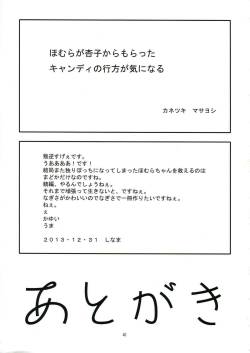 ほむらが杏子からもらった
キャンディの行方が気になる
カネツキ マサヨシ
叛逆すげぇです。
うああああ！です！
結局また独りぼっちになってしまったほむらちゃんを救えるのは
まどかだけなのですね。
続編、やるんでしょうねぇ。
それまで頑張って生きないと、ですねぇ。
なぎさがかわいいのでなぎさで一冊作りたいですねぇ。
ねぇ。
ぇ
かゆい
うま
２０１３・１２・３１ しなま
あとがき